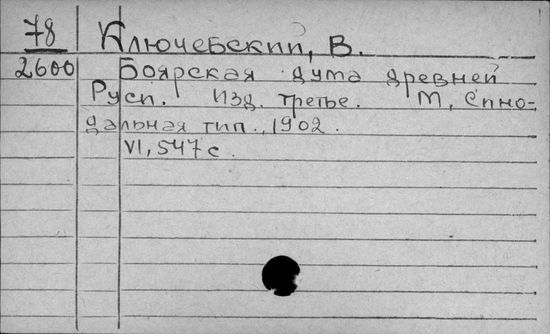 78 Ключевский, В.
2600 Боярская дума древней
Руси. Изд. третье. М, Сино-
дальная тип., 1902.
VI, 547 с.